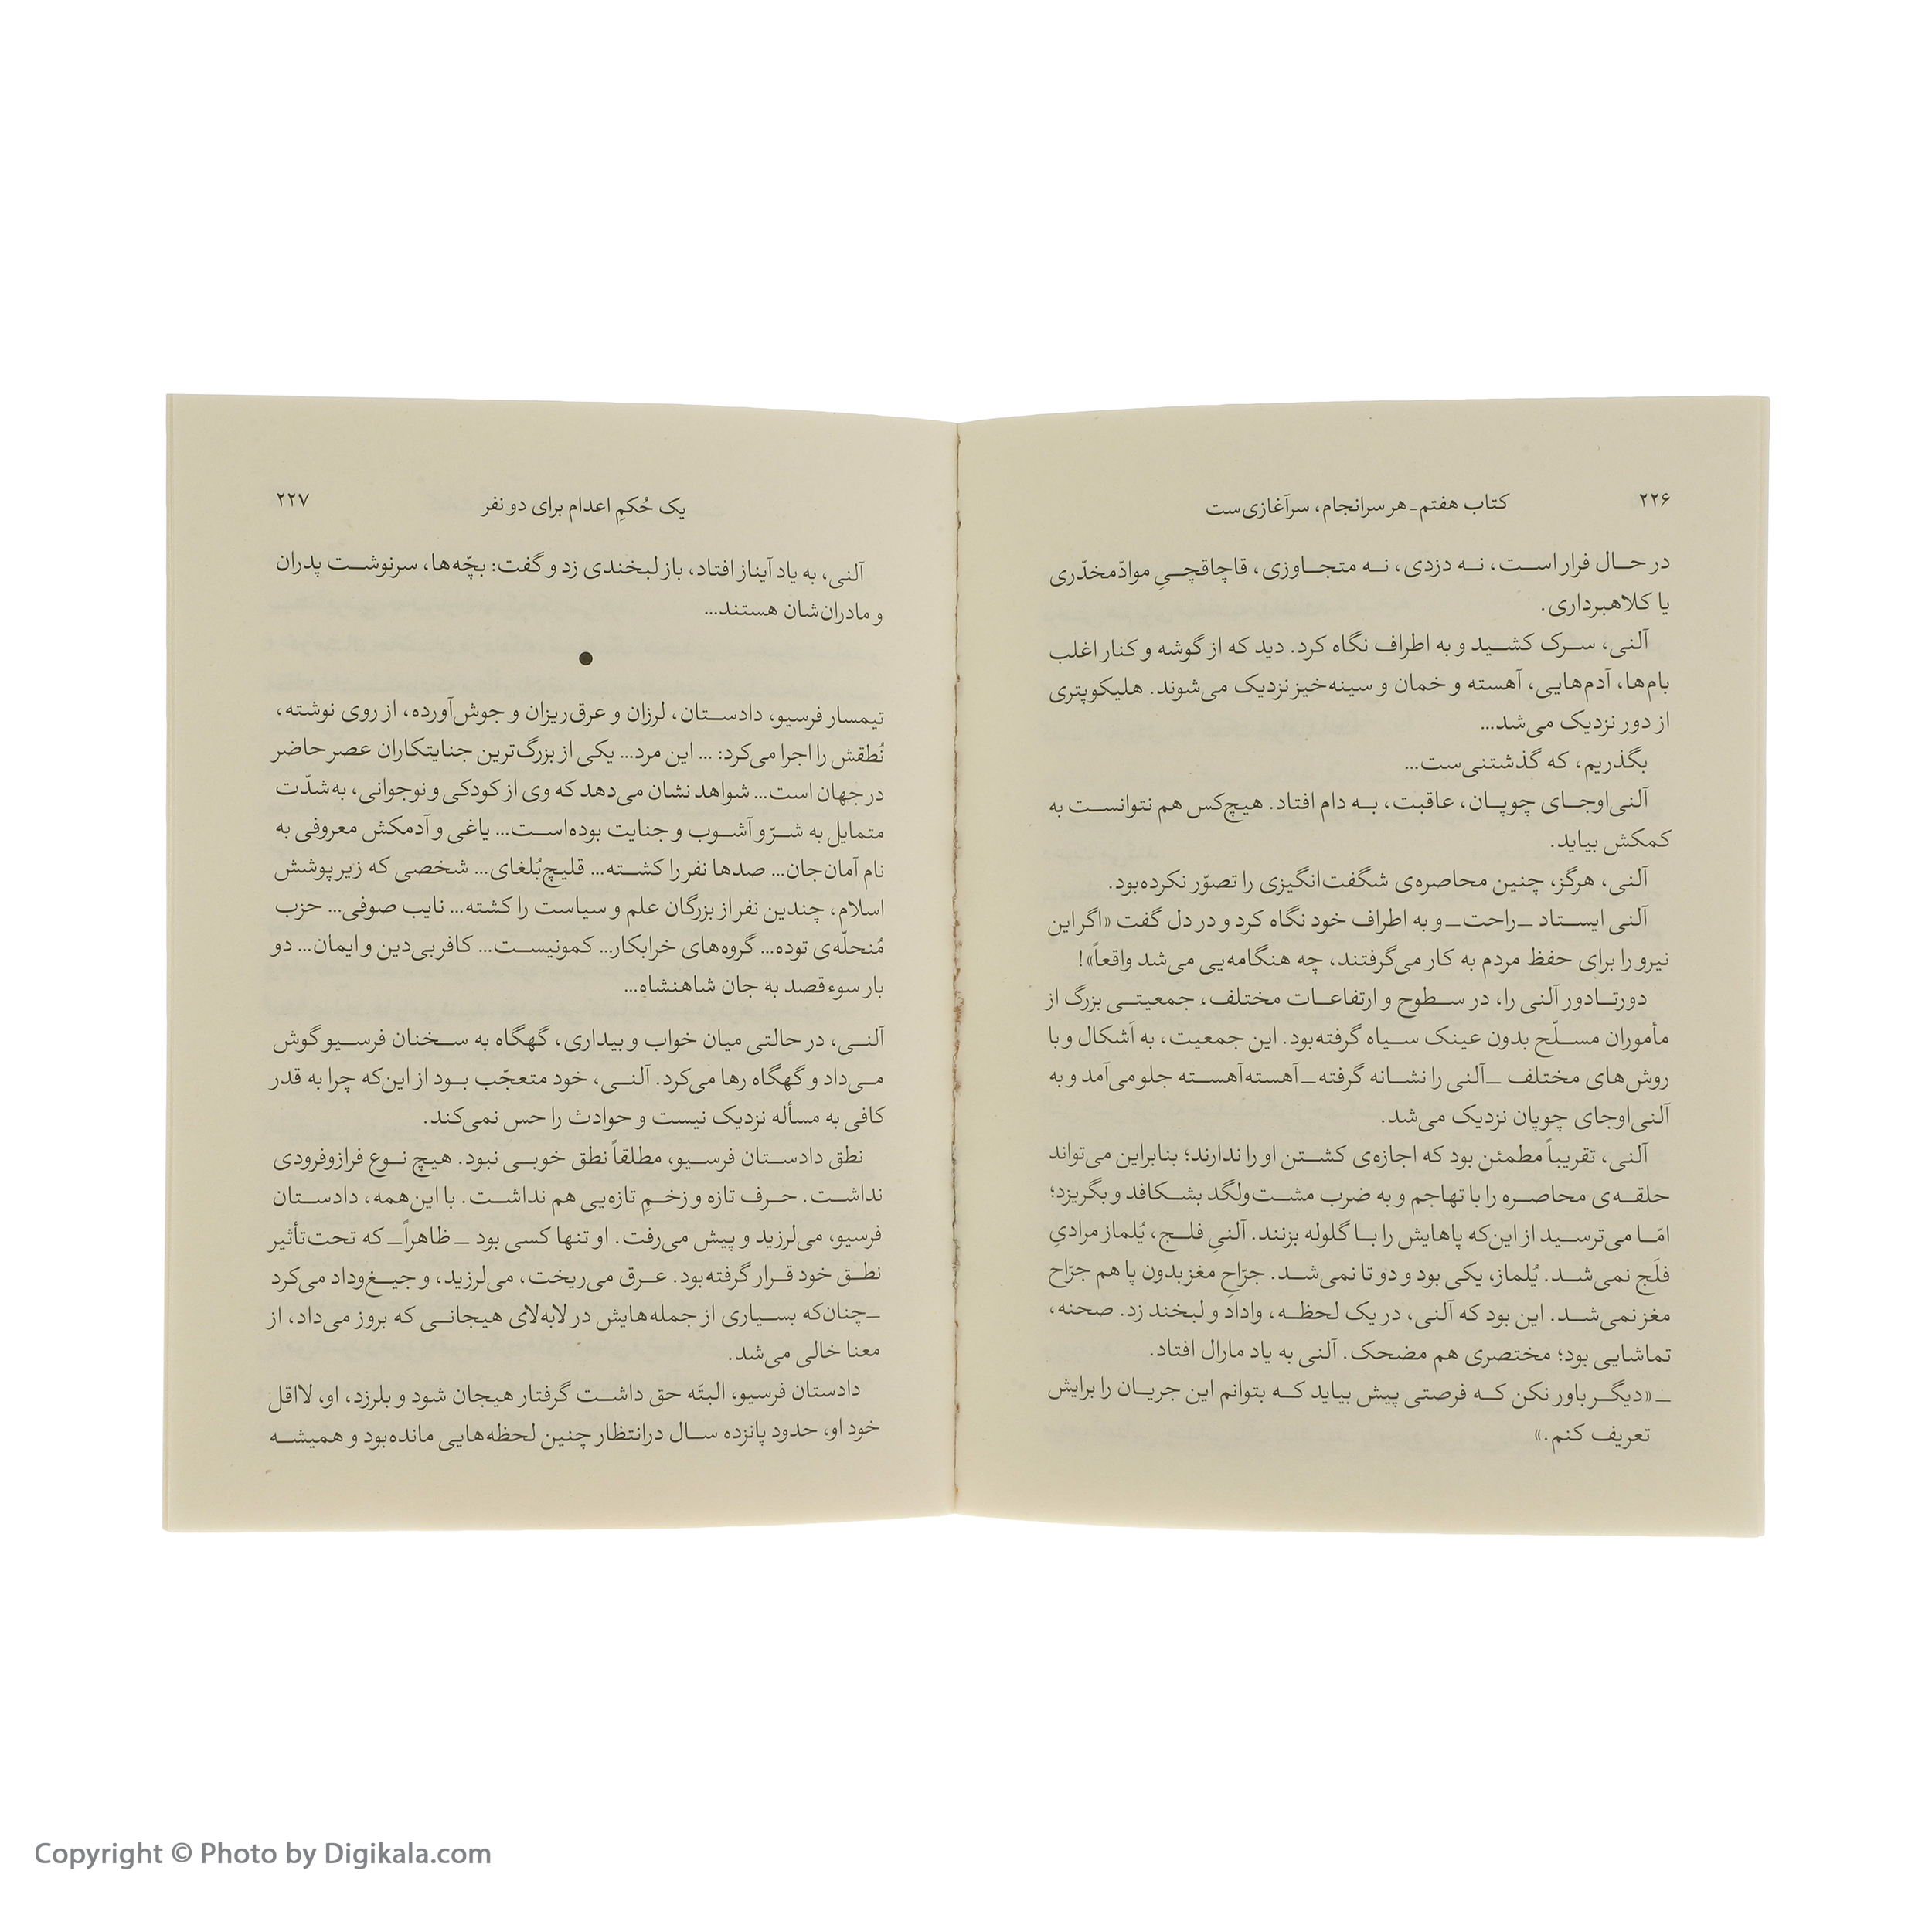 ۲۲۶
کتاب هفتم ـ هر سرانجام، سرآغازی‌ست
در حال فرار است، نه دزدی، نه متجاوزی، قاچاقچیِ موادّمخدّری
یا کلاهبرداری.
آلنی، سرک کشید و به اطراف نگاه کرد. دید که از گوشه و کنار اغلب
بام‌ها، آدم‌هایی، آهسته و خمان و سینه‌خیز نزدیک می‌شوند. هلیکوپتری
از دور نزدیک می‌شد...
بگذریم، که گذشتنی‌ست...
آلنی‌اوجای چوپان، عاقبت، به دام افتاد. هیچ‌کس هم نتوانست به
کمکش بیاید.
آلنی، هرگز، چنین محاصره‌ی شگفت‌انگیزی را تصوّر نکرده‌بود.
آلنی ایستاد ـ راحت ـ و به اطراف خود نگاه کرد و در دل گفت «اگر این
نیرو را برای حفظ مردم به کار می‌گرفتند، چه هنگامه‌یی می‌شد واقعاً»!
دورتادور آلنی را، در سطوح و ارتفاعات مختلف، جمعیتی بزرگ از
مأموران مسلّح بدون عینک سیاه گرفته‌بود. این جمعیت، به اَشکال و با
روش‌های مختلف ـ آلنی را نشانه گرفته ـ آهسته‌آهسته جلو می‌آمد و به
آلنی‌اوجای چوپان نزدیک می‌شد.
آلنی، تقریباً مطمئن بود که اجازه‌ی کشتن او را ندارند؛ بنابراین می‌تواند
حلقه‌ی محاصره را با تهاجم و به ضرب مشت‌ولگد بشکافد و بگریزد؛
امّا می‌ترسید از این‌که پاهایش را با گلوله بزنند. آلنیِ فلج، یُلماز مرادیِ
فلَج نمی‌شد. یُلماز، یکی بود و دو تا نمی‌شد. جرّاحِ مغز بدون پا هم جرّاح
مغز نمی‌شد. این بود که آلنی، در یک لحظه، واداد و لبخند زد. صحنه،
تماشایی بود؛ مختصری هم مضحک. آلنی به یاد مارال افتاد.
ـ «دیگر باور نکن که فرصتی پیش بیاید که بتوانم این جریان را برایش
تعریف کنم.»
یک حُکمِ اعدام برای دو نفر
۲۲۷
آلنی، به یاد آیناز افتاد، باز لبخندی زد و گفت: بچّه‌ها، سرنوشت پدران
و مادران‌شان هستند...
●
تیمسار فرسیو، دادستان، لرزان و عرق‌ریزان و جوش‌آورده، از روی نوشته،
نُطقش را اجرا می‌کرد: ... این مرد... یکی از بزرگ‌ترین جنایتکاران عصر حاضر
در جهان است... شواهد نشان می‌دهد که وی از کودکی و نوجوانی، به‌شدّت
متمایل به شرّ و آشوب و جنایت بوده‌است... یاغی و آدمکش معروفی به
نام آمان‌جان... صدها نفر را کشته... قلیچ‌بُلغای... شخصی که زیر پوشش
اسلام، چندین نفر از بزرگان علم و سیاست را کشته... نایب صوفی... حزب
مُنحلّه‌ی توده... گروه‌های خرابکار... کمونیست... کافر بی‌دین و ایمان... دو
بار سوءقصد به جان شاهنشاهِ...
آلنی، در حالتی میان خواب و بیداری، گهگاه به سخنان فرسیو گوش
می‌داد و گهگاه رها می‌کرد. آلنی، خود متعجّب بود از این‌که چرا به قدر
کافی به مسأله نزدیک نیست و حوادث را حس نمی‌کند.
نطق دادستان فرسیو، مطلقاً نطق خوبی نبود. هیچ نوع فرازوفرودی
نداشت. حرف تازه و زخمِ تازه‌یی هم نداشت. با این‌همه، دادستان
فرسیو، می‌لرزید و پیش می‌رفت. او تنها کسی بود ـ ظاهراً ـ که تحت‌تأثیر
نطق خود قرار گرفته‌بود. عرق می‌ریخت، می‌لرزید، و جیغ‌وداد می‌کرد
ـ چنان‌که بسیاری از جمله‌هایش در لابه‌لای هیجانی که بروز می‌داد، از
معنا خالی می‌شد.
دادستان فرسیو، البتّه حق داشت گرفتار هیجان شود و بلرزد، او، لااقل
خود او، حدود پانزده سال درانتظار چنین لحظه‌هایی مانده‌بود و همیشه
Copyright © Photo by Digikala.com